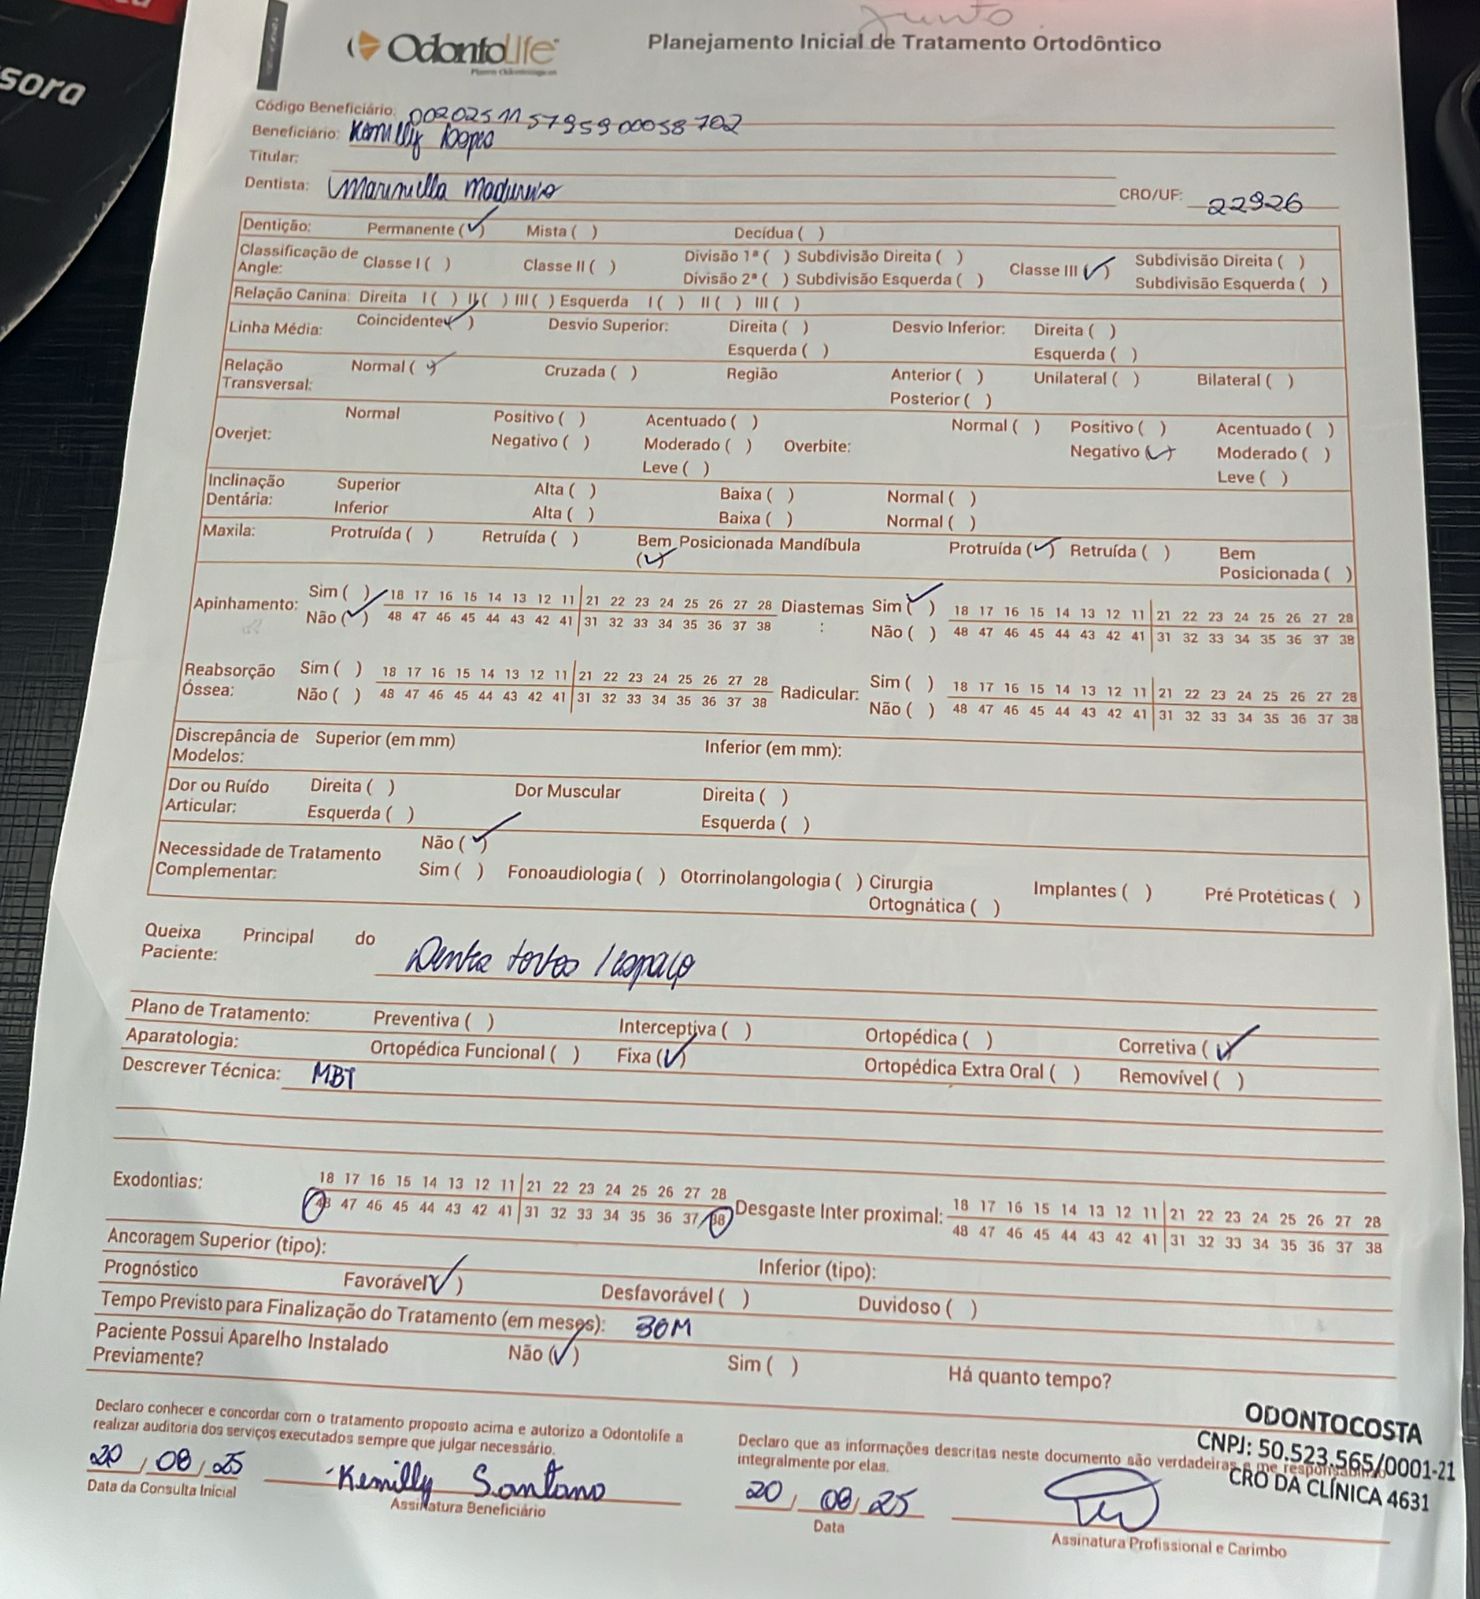 sora
Junto
OdontoLife
Planos Odontológicos
Planejamento Inicial de Tratamento Ortodôntico
Código Beneficiário: 002025115795900058702
Beneficiário: Kemilly
Titular:
Dentista: CRO/UF: 22926
Dentição: Permanente ( ✓ ) Mista ( ) Decídua ( )
Classificação de Angle: Classe I ( ) Classe II ( ) Divisão 1ª ( ) Subdivisão Direita ( ) Classe III ( ✓ ) Subdivisão Direita ( )
Divisão 2ª ( ) Subdivisão Esquerda ( ) Subdivisão Esquerda ( )
Relação Canina: Direita I ( ) II ( ) III ( ) Esquerda I ( ) II ( ) III ( )
Linha Média: Coincidente ( ✓ ) Desvio Superior: Direita ( ) Desvio Inferior: Direita ( )
Esquerda ( ) Esquerda ( )
Relação Transversal: Normal ( ✓ ) Cruzada ( ) Região Anterior ( ) Unilateral ( ) Bilateral ( )
Posterior ( )
Overjet: Normal Positivo ( ) Acentuado ( ) Overbite: Normal ( ) Positivo ( ) Acentuado ( )
Negativo ( ) Moderado ( ) Negativo ( ✓ ) Moderado ( )
Leve ( ) Leve ( )
Inclinação Dentária: Superior Alta ( ) Baixa ( ) Normal ( )
Inferior Alta ( ) Baixa ( ) Normal ( )
Maxila: Protruída ( ) Retruída ( ) Bem Posicionada ( ✓ ) Mandíbula Protruída ( ✓ ) Retruída ( ) Bem Posicionada ( )
Apinhamento: Sim ( ) 18 17 16 15 14 13 12 11 21 22 23 24 25 26 27 28 Diastemas : Sim ( ✓ ) 18 17 16 15 14 13 12 11 21 22 23 24 25 26 27 28
Não ( ✓ ) 48 47 46 45 44 43 42 41 31 32 33 34 35 36 37 38 Não ( ) 48 47 46 45 44 43 42 41 31 32 33 34 35 36 37 38
Reabsorção Óssea: Sim ( ) 18 17 16 15 14 13 12 11 21 22 23 24 25 26 27 28 Radicular: Sim ( ) 18 17 16 15 14 13 12 11 21 22 23 24 25 26 27 28
Não ( ) 48 47 46 45 44 43 42 41 31 32 33 34 35 36 37 38 Não ( ) 48 47 46 45 44 43 42 41 31 32 33 34 35 36 37 38
Discrepância de Modelos: Superior (em mm) Inferior (em mm):
Dor ou Ruído Articular: Direita ( ) Dor Muscular Direita ( )
Esquerda ( ) Esquerda ( )
Necessidade de Tratamento Complementar: Não ( ✓ )
Sim ( ) Fonoaudiologia ( ) Otorrinolangologia ( ) Cirurgia Ortognática ( ) Implantes ( ) Pré Protéticas ( )
Queixa Principal do Paciente: Dentes tortos / espaço
Plano de Tratamento: Preventiva ( ) Interceptiva ( ) Ortopédica ( ) Corretiva ( ✓ )
Aparatologia: Ortopédica Funcional ( ) Fixa ( ✓ ) Ortopédica Extra Oral ( ) Removível ( )
Descrever Técnica: MBT
Exodontias: 18 17 16 15 14 13 12 11 21 22 23 24 25 26 27 28 Desgaste Inter proximal: 18 17 16 15 14 13 12 11 21 22 23 24 25 26 27 28
48 47 46 45 44 43 42 41 31 32 33 34 35 36 37 38 48 47 46 45 44 43 42 41 31 32 33 34 35 36 37 38
Ancoragem Superior (tipo): Inferior (tipo):
Prognóstico Favorável ( ✓ ) Desfavorável ( ) Duvidoso ( )
Tempo Previsto para Finalização do Tratamento (em meses): 30M
Paciente Possui Aparelho Instalado Previamente? Não ( ✓ ) Sim ( ) Há quanto tempo?
Declaro conhecer e concordar com o tratamento proposto acima e autorizo a Odontolife a
realizar auditoria dos serviços executados sempre que julgar necessário.
Declaro que as informações descritas neste documento são verdadeiras e me responsabilizo
integralmente por elas.
ODONTOCOSTA
CNPJ: 50.523.565/0001-21
CRO DA CLÍNICA 4631
20 / 08 / 25 Kemilly Santana 20 / 08 / 25
Data da Consulta Inicial Assinatura Beneficiário Data Assinatura Profissional e Carimbo